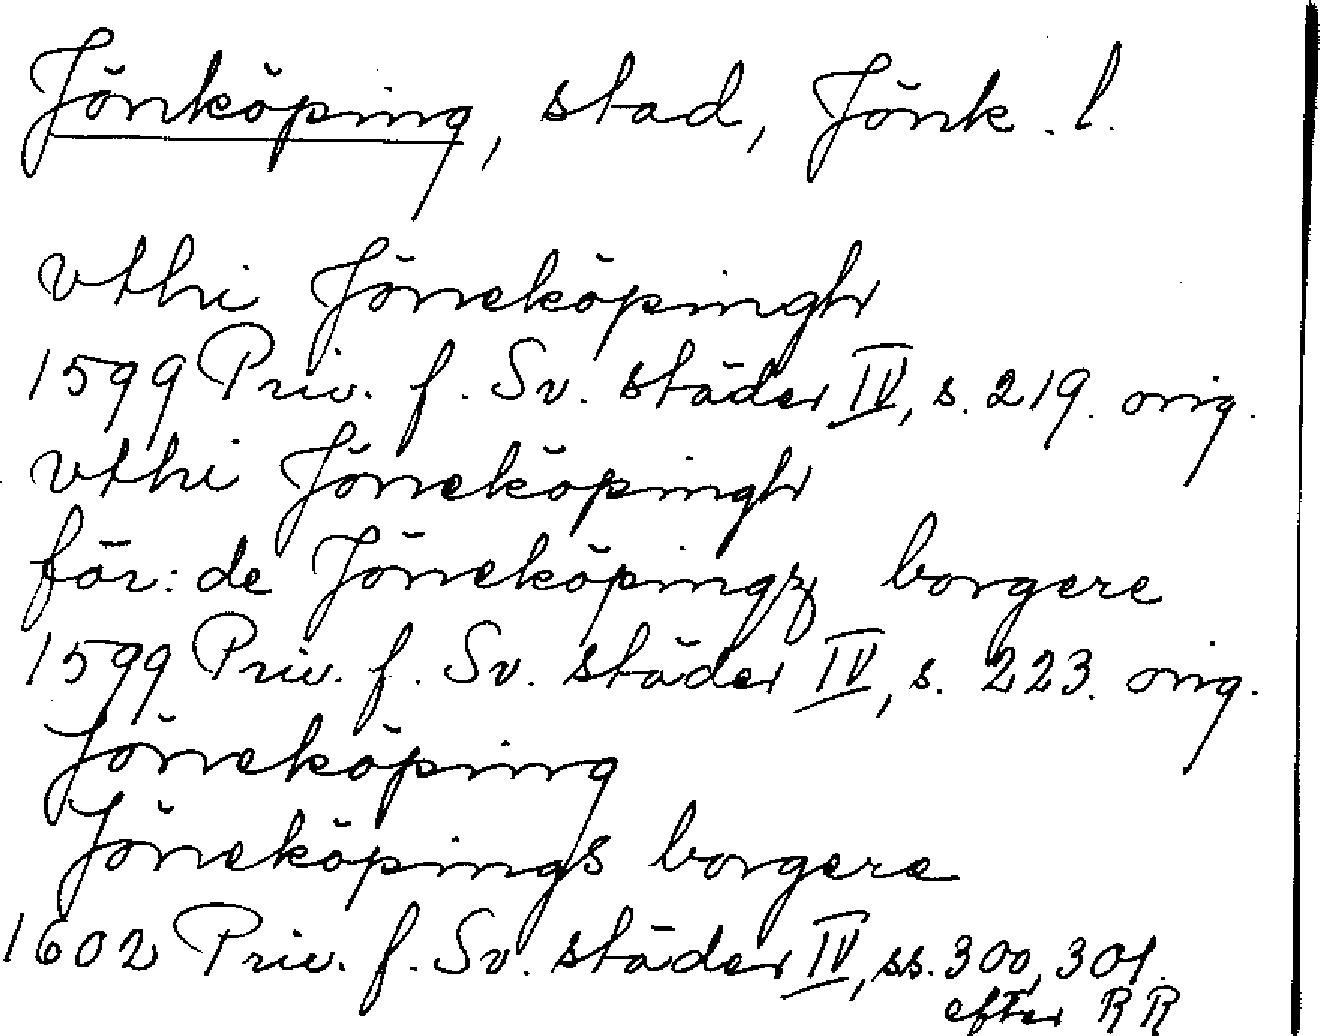 Jönköping, stad, Jönk. l.
vthi Jöneköpingh
1599 Priv. f. Sv. städer IV, s. 219. orig.
vthi Jöneköpingh
för: de Jöneköpingz borgere
1599 Priv. f. Sv. städer IV, s. 223. orig.
Jöneköping
Jöneköpings borgere
1602 Priv. f. Sv. städer IV, ss. 300, 301.
efter RR